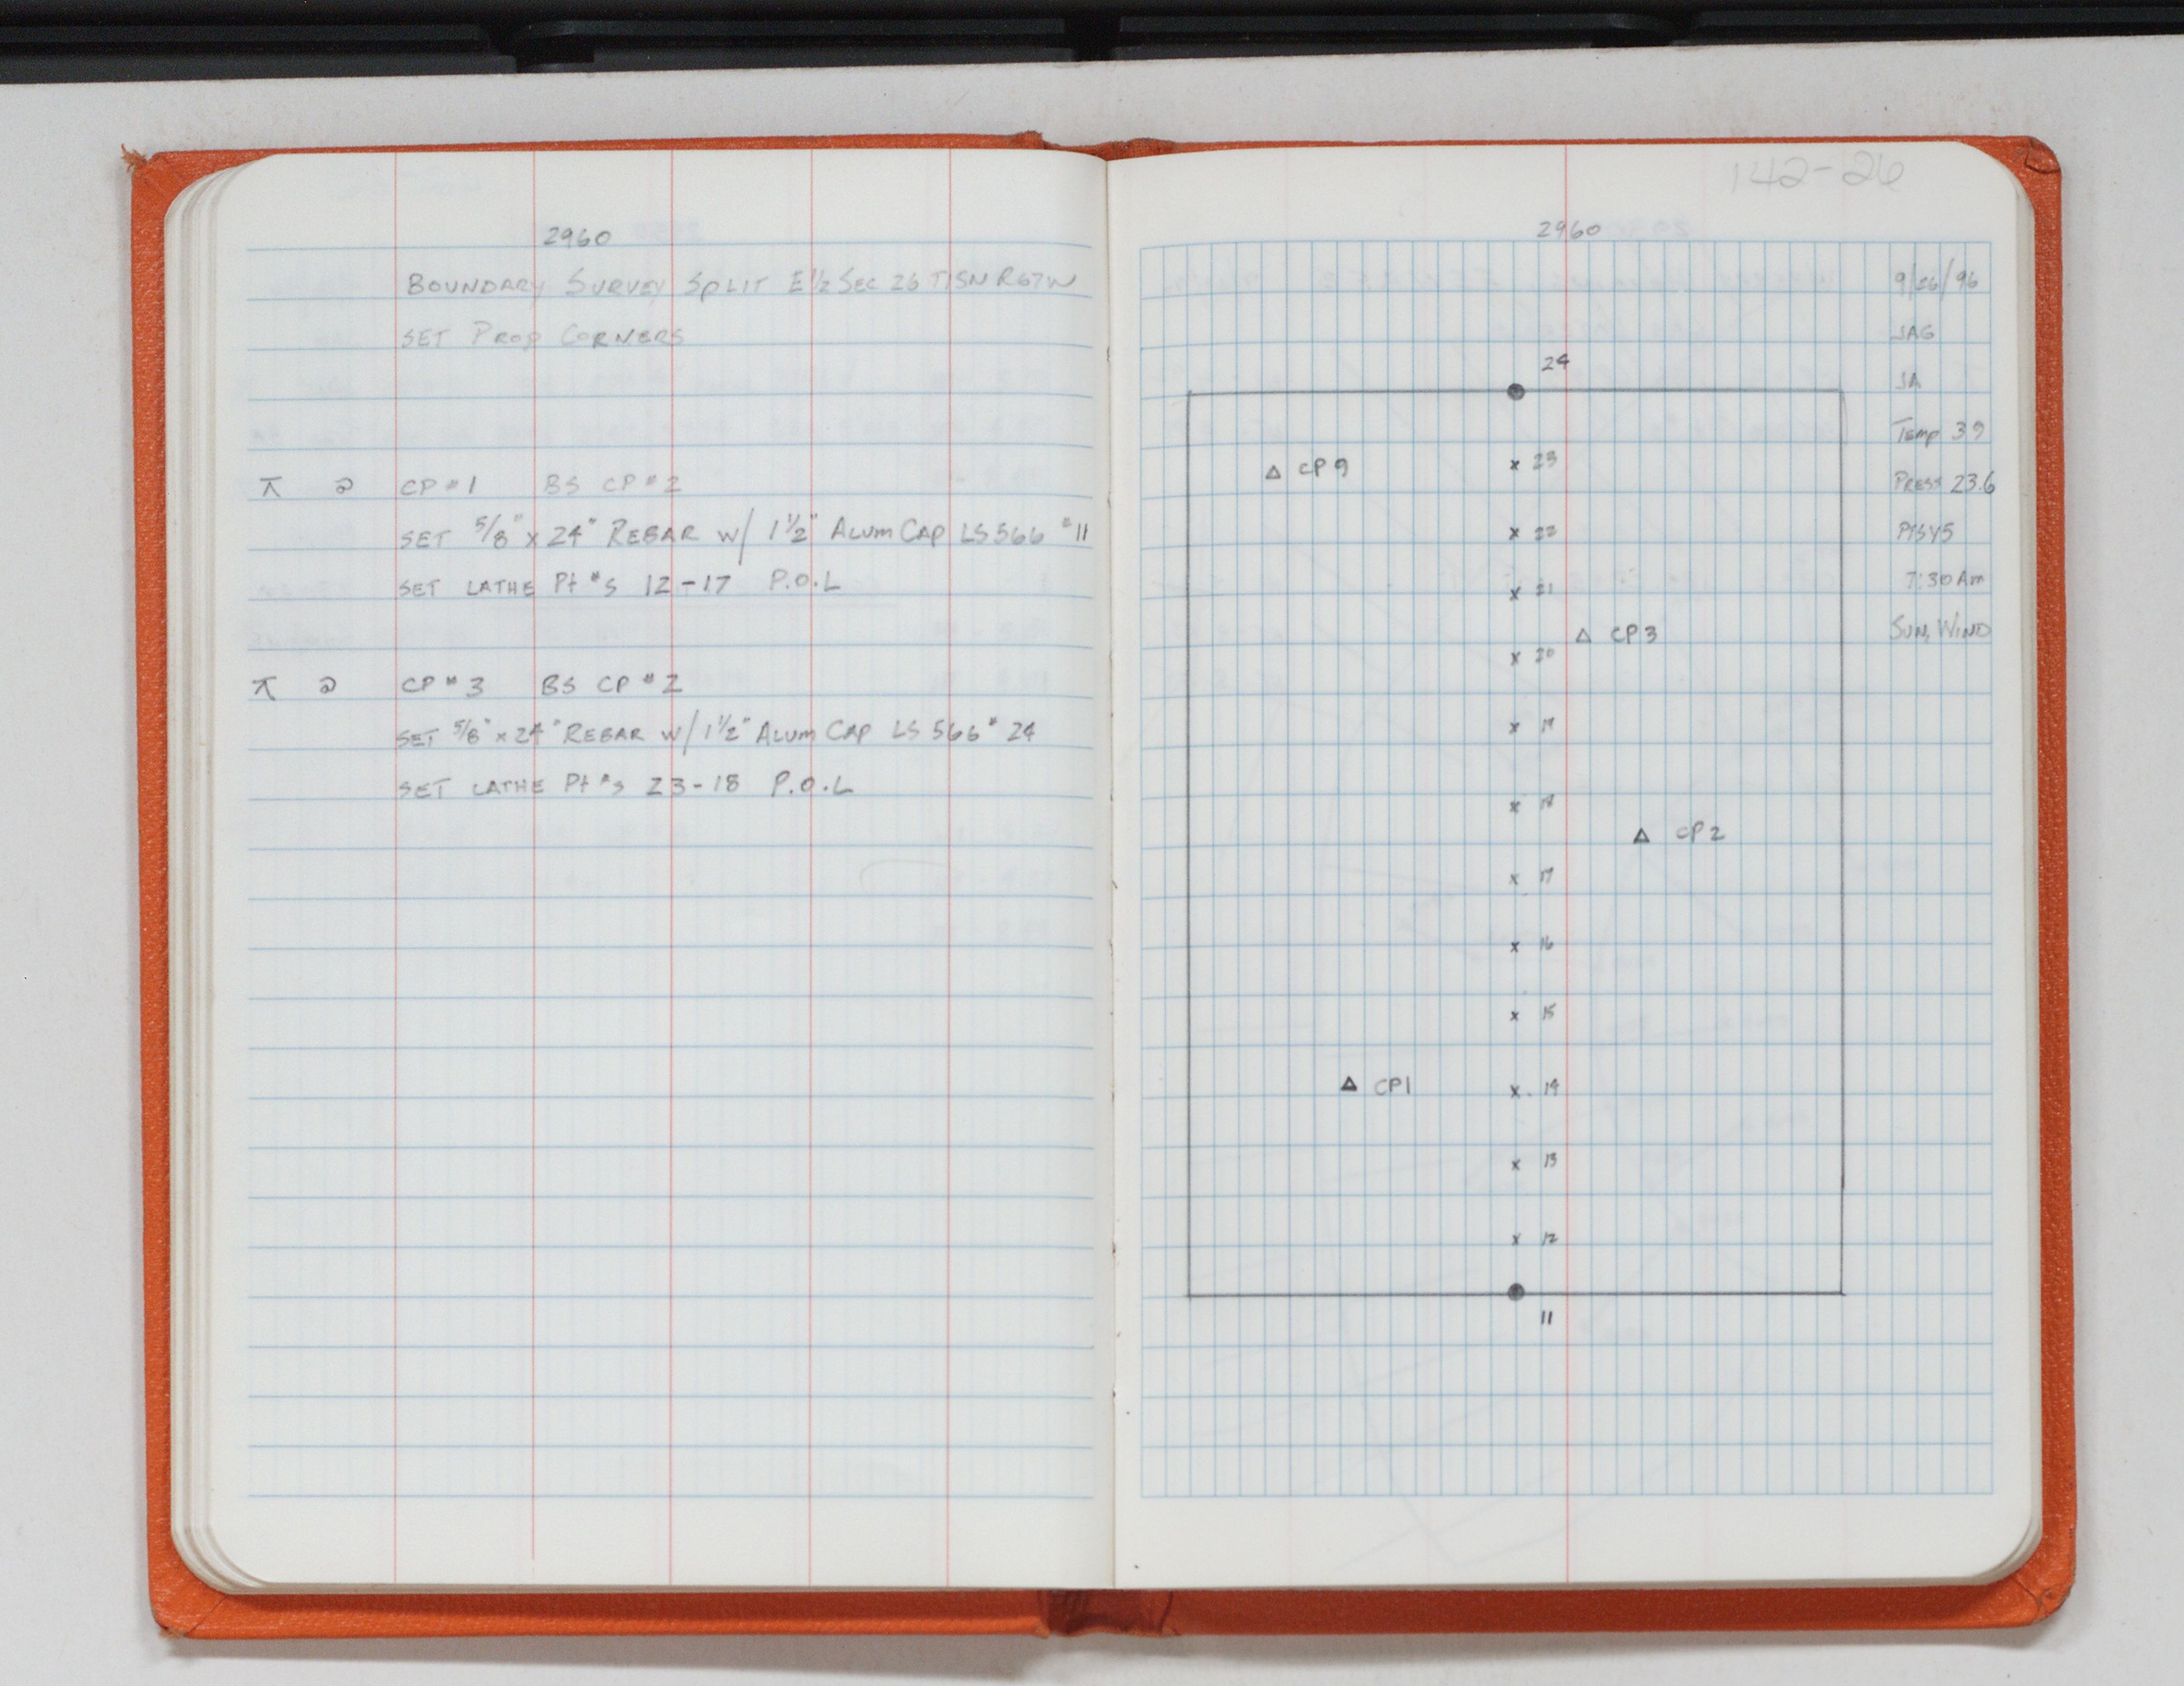 2960
BOUNDARY SURVEY SPLIT E 1/2 SEC 26 T15N R67W
SET PROP CORNERS
⊼ @ CP #1 BS CP #2
SET 5/8" x 24" REBAR W/ 1 1/2" ALUM CAP LS 566 #11
SET LATHE Pt #s 12-17 P.O.L
⊼ @ CP #3 BS CP #2
SET 5/8" x 24" REBAR W/ 1 1/2" ALUM CAP LS 566 # 24
SET LATHE Pt #s 23-18 P.O.L
142-26
2960
9/26/96
JAG
JA
Temp 39
PRESS 23.6
7:30 Am
SUN, WIND
24
x 23
△ CP 9
x 22
x 21
△ CP 3
x 20
x 19
x 18
△ CP 2
x 17
x 16
x 15
△ CP 1
x 14
x 13
x 12
11